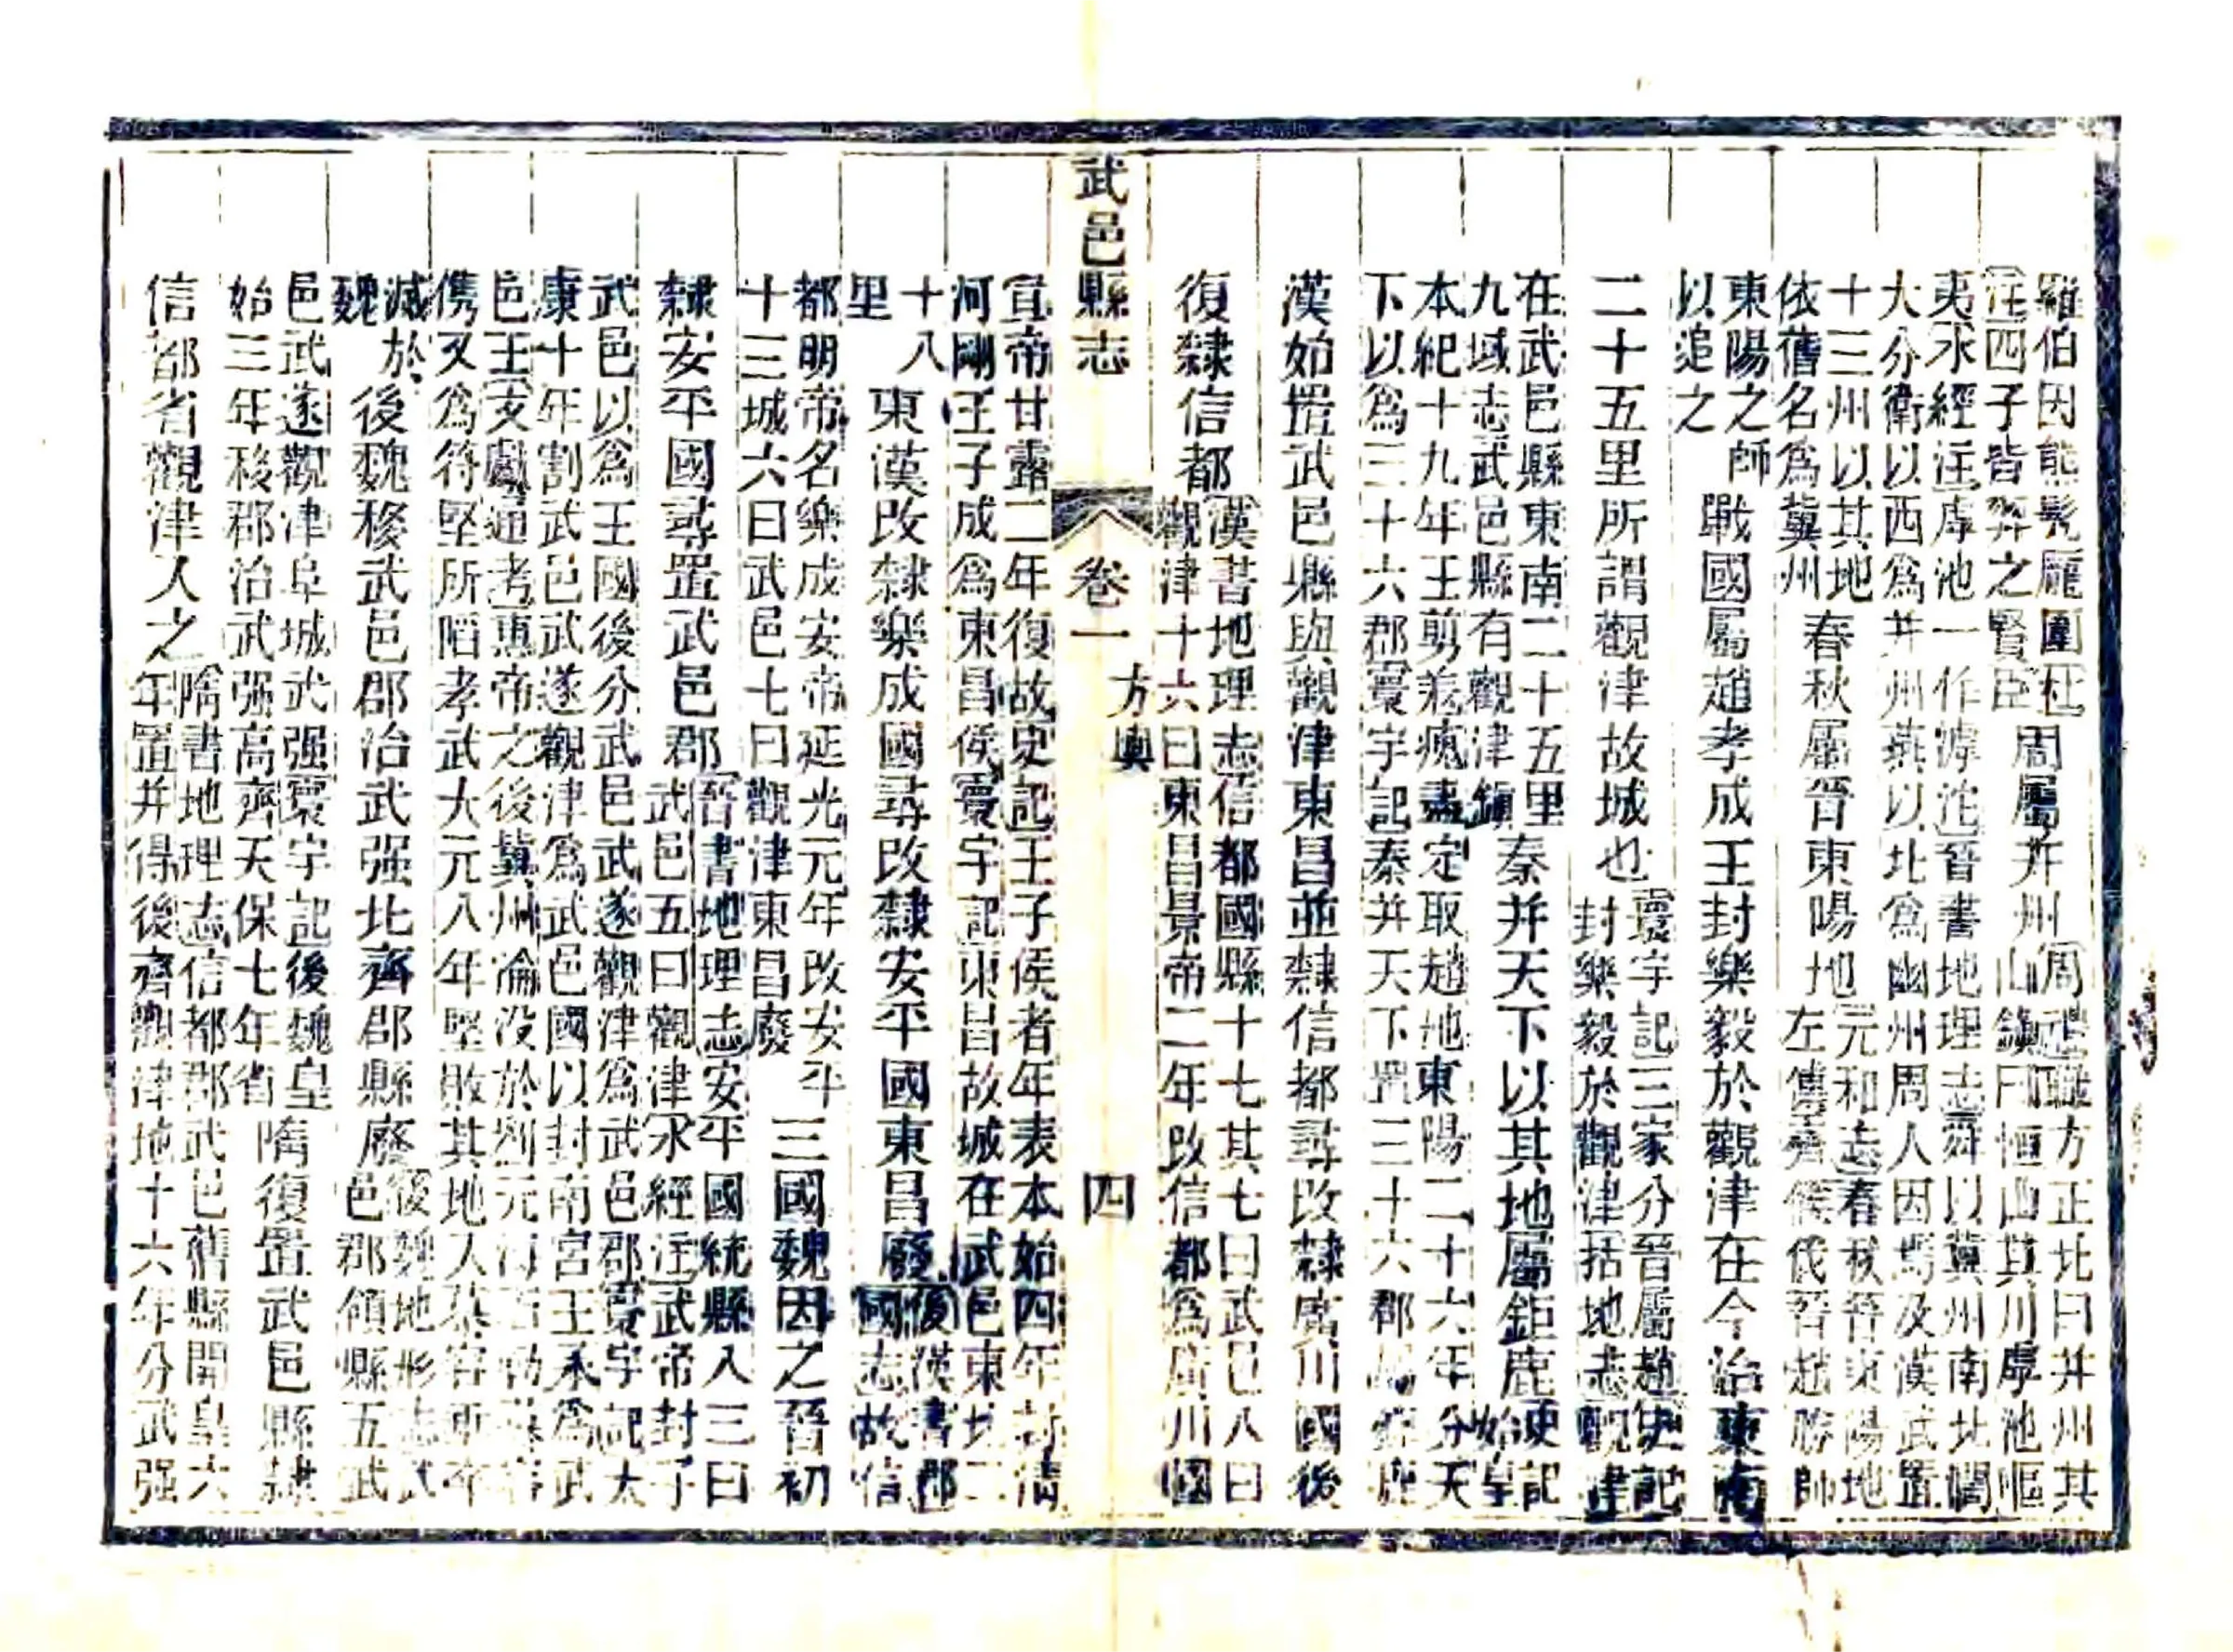 羅伯因熊髡厖圉杜
注四子皆羿之賢臣
周屬并州
周禮職方正北曰并州其
山鎮曰恒山其川虖池嘔
夷水經注虖池一作滹沱晉書地理志舜以冀州南北闊
大分衛以西爲并州燕以北爲幽州周人因焉及漢武置
十三州以其地
依舊名爲冀州
春秋屬晉東陽地
元和志春秋晉東陽地
左傳齊侯伐晉趙勝帥
東陽之師
以追之
戰國屬趙孝成王封樂毅於觀津在今治東南
二十五里所謂觀津故城也
寰宇記三家分晉屬趙史記
封樂毅於觀津括地志觀津
在武邑縣東南二十五里
九域志武邑縣有觀津鎮
秦并天下以其地屬鉅鹿
史記
始皇
本紀十九年王翦羌瘣盡定取趙地東陽二十六年分天
下以爲三十六郡寰宇記秦并天下置三十六郡屬鉅鹿
漢始置武邑縣與觀津東昌並隸信都尋改隸廣川國後
復隸信都
漢書地理志信都國縣十七其七曰武邑八曰
觀津十六曰東昌景帝二年改信都爲廣川國
武邑縣志
卷一
方輿
四
宣帝甘露二年復故史記王子侯者年表本始四年封清
河剛王子成爲東昌侯寰宇記東昌故城在武邑東北二
十八
里
東漢改隸樂成國尋改隸安平國東昌廢
後漢書郡
國志故信
都明帝名樂成安帝延光元年改安平
十三城六曰武邑七曰觀津東昌廢
三國魏因之晉初
隸安平國尋置武邑郡
晉書地理志安平國統縣八三曰
武邑五曰觀津水經注武帝封子
武邑以爲王國後分武邑武遂觀津爲武邑郡寰宇記太
康十年割武邑武遂觀津爲武邑國以封南宮王承爲武
邑王文獻通考惠帝之後冀州淪没於劉元海石勒慕容
儁又爲符堅所陷孝武太元八年堅敗其地入慕容垂卒
滅於
魏
後魏移武邑郡治武强北齊郡縣廢
後魏地形志武
邑郡領縣五武
邑武遂觀津阜城武强寰宇記後魏皇
始三年移郡治武强高齊天保七年省
隋復置武邑縣隸
信都省觀津入之
隋書地理志信都郡武邑舊縣開皇六
年置并得後齊觀津地十六年分武强